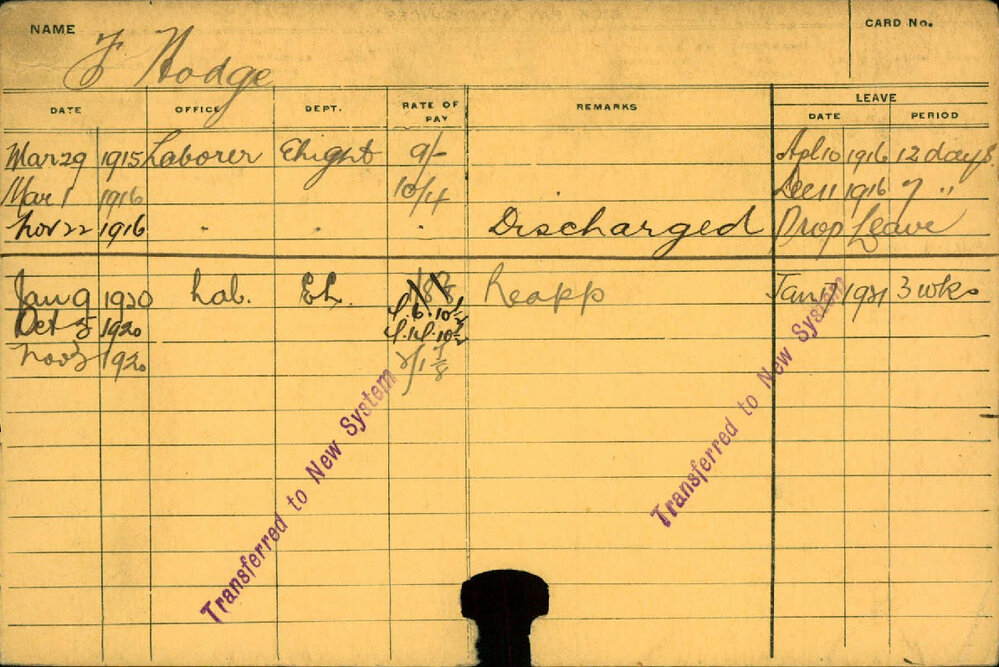 NAME F Hodge CARD No.
DATE OFFICE DEPT. RATE OF PAY REMARKS LEAVE DATE PERIOD
Mar 29 1915 Laborer Elight 9/- Apl 10 1916 12 days.
Mar 1 1916 10/4 Dec 11 1916 7 "
Nov 22 1916 . . . Discharged Drop Leave
Jan 9 1920 Lab. EL. Reapp Jan 17 1921 3 wks
Oct 5 1920
Nov 3 1920 2/1 7/8
Transferred to New System
Transferred to New System